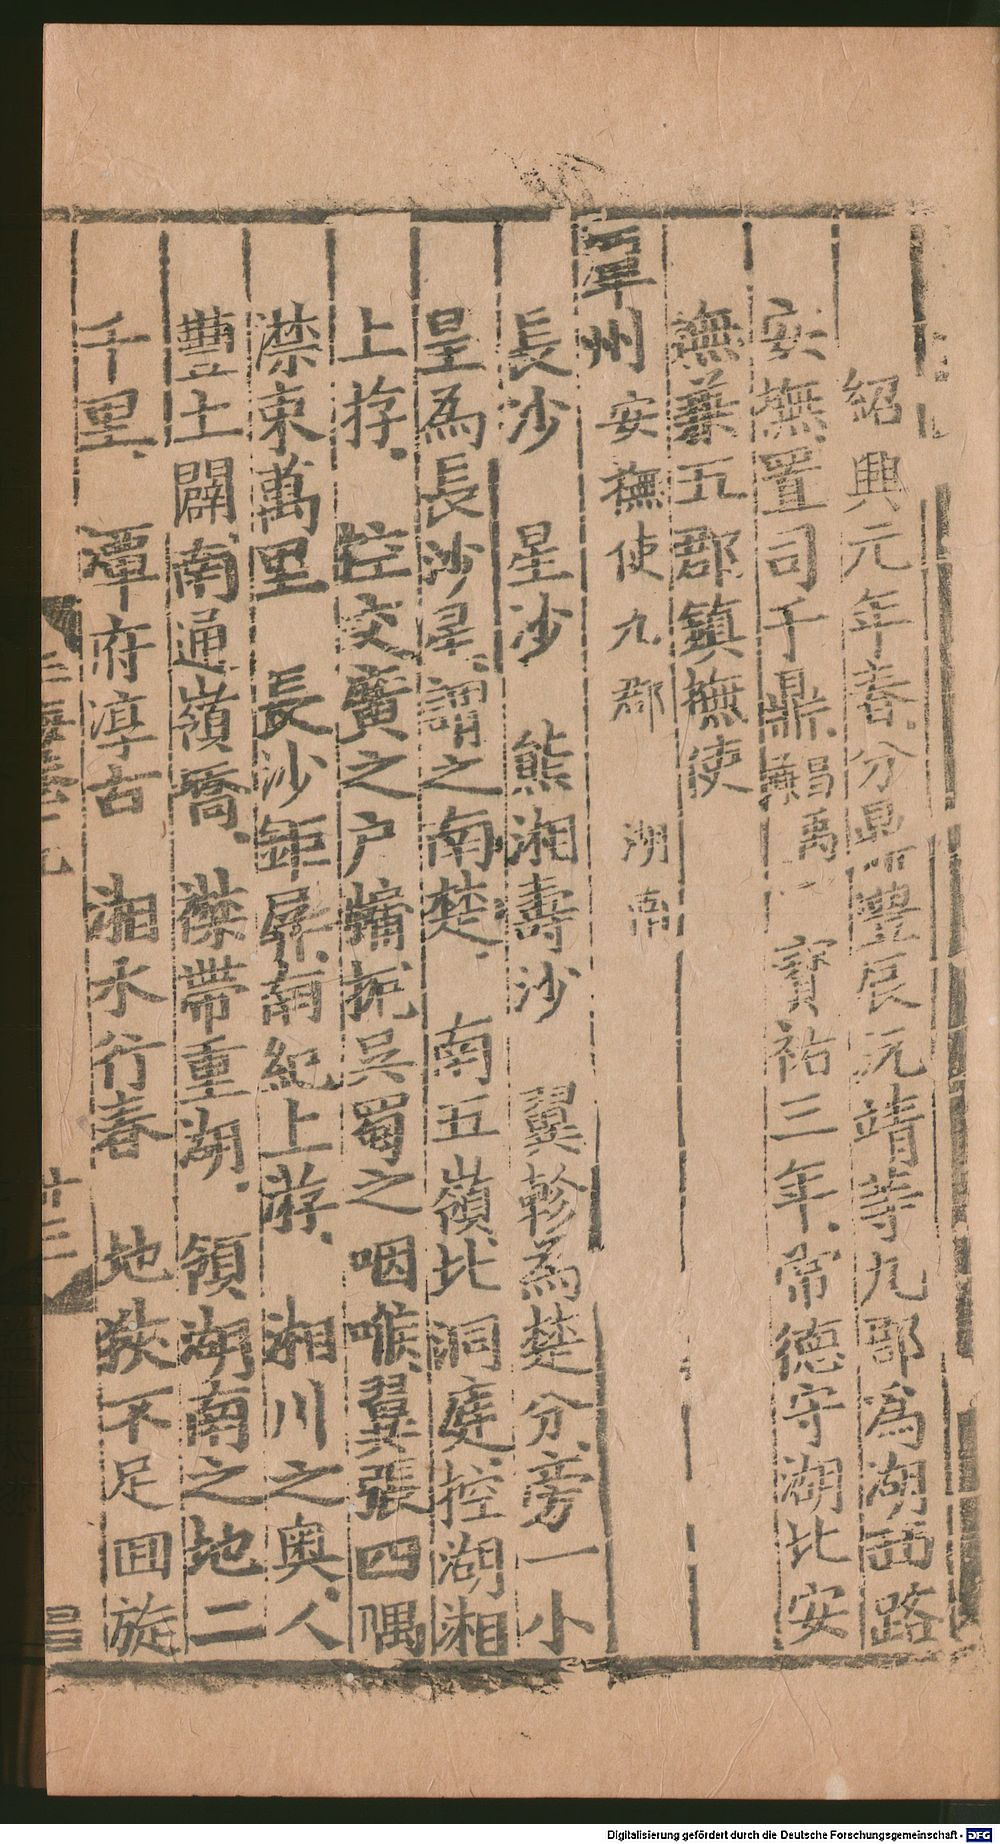 紹興元年春分鼎豐辰沅靖等九郡為湖西路
安撫置司于鼎 寳祐三年常徳守湖比安
撫兼五郡鎮撫使
潭州 安撫使 九郡 湖南
長沙 星沙 熊湘壽沙 翼軫為楚分旁一小
星為長沙星謂之南楚 南五嶺比洞庭控湖湘
上㳺 控交廣之户牖扼吴蜀之咽喉翼張四隅
襟束萬里 長沙鉅屏南紀上㳺 湘川之奥人
豐土闢南通嶺嶠襟帶重湖領湖南之地二
千里 潭府淳古 湘水行春 地狹不足囬旋
廿三
Digitalisierung gefördert durch die Deutsche Forschungsgemeinschaft - DFG